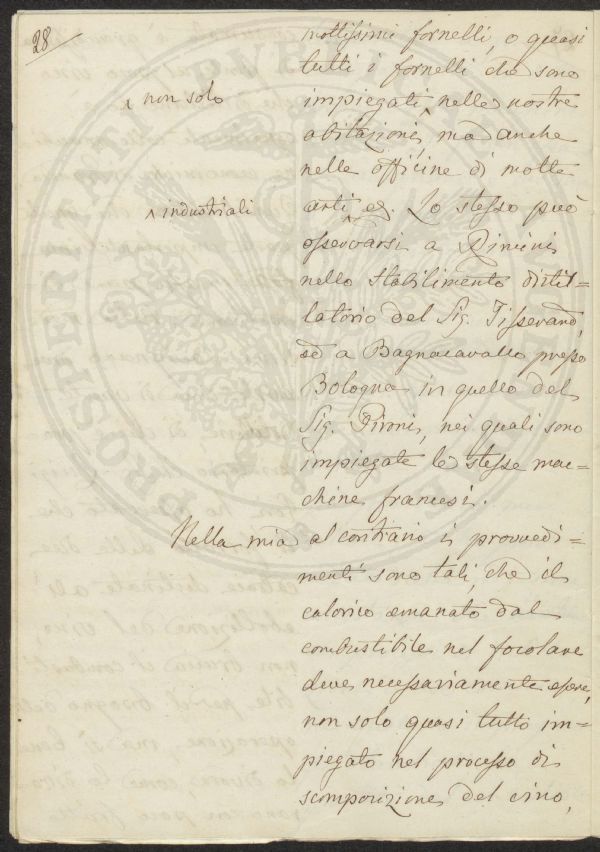 28
moltissimi fornelli, o quasi
tutti i fornelli che sono
^ non solo
impiegati ^ nelle nostre
abitazioni, ma anche
nelle officine di molte
^ industriali
arti ^ &. Lo stesso può
osservarsi a Rimini
nello stabilimento distil=
latorio del Sig. Tisserand,
ed a Bagnacavallo presso
Bologna in quello del
Sig. Pironi, nei quali sono
impiegate le stesse mac=
chine francesi.
Nella mia al contrario i provvedi=
menti sono tali, che il
calorico emanato dal
combustibile nel focolare
deve necessariamente essere,
non solo quasi tutto im=
piegato nel processo di
scomposizione del vino,
PROSPERITA
PVBLICAE